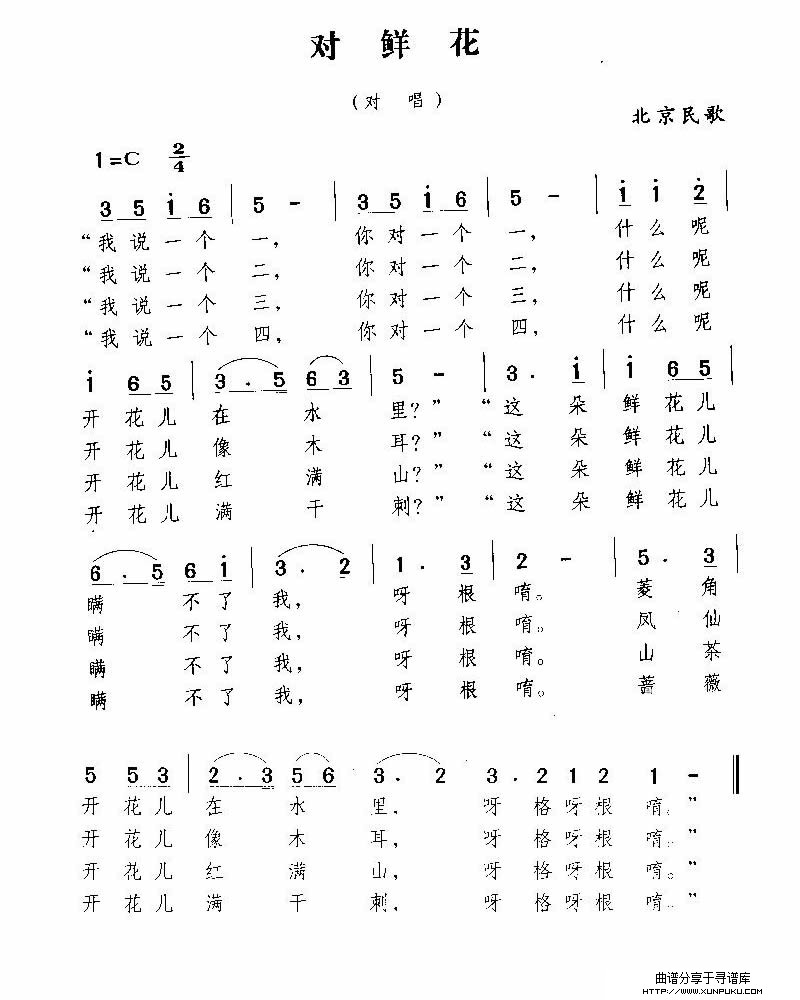 对鲜花
（对唱）
北京民歌
1=C 2/4
3 5 i 6 | 5 - | 3 5 i 6 | 5 - | i i 2 |
“我说一个一，你对一个一，什么呢
“我说一个二，你对一个二，什么呢
“我说一个三，你对一个三，什么呢
“我说一个四，你对一个四，什么呢
i 6 5 | 3 . 5 6 3 | 5 - | 3 . i | i 6 5 |
开花儿在水里？”“这朵鲜花儿
开花儿像木耳？”“这朵鲜花儿
开花儿红满山？”“这朵鲜花儿
开花儿满干刺？”“这朵鲜花儿
6 . 5 6 i | 3 . 2 | 1 . 3 | 2 - | 5 . 3 |
瞒不了我，呀根唷。菱角
瞒不了我，呀根唷。凤仙
瞒不了我，呀根唷。山茶
瞒不了我，呀根唷。蔷薇
5 5 3 | 2 . 3 5 6 | 3 . 2 | 3 . 2 1 2 | 1 - ‖
开花儿在水里，呀格呀根唷。”
开花儿像木耳，呀格呀根唷。”
开花儿红满山，呀格呀根唷。”
开花儿满干刺，呀格呀根唷。”
曲谱分享于寻谱库
HTTP://WWW.XUNPUKU.COM